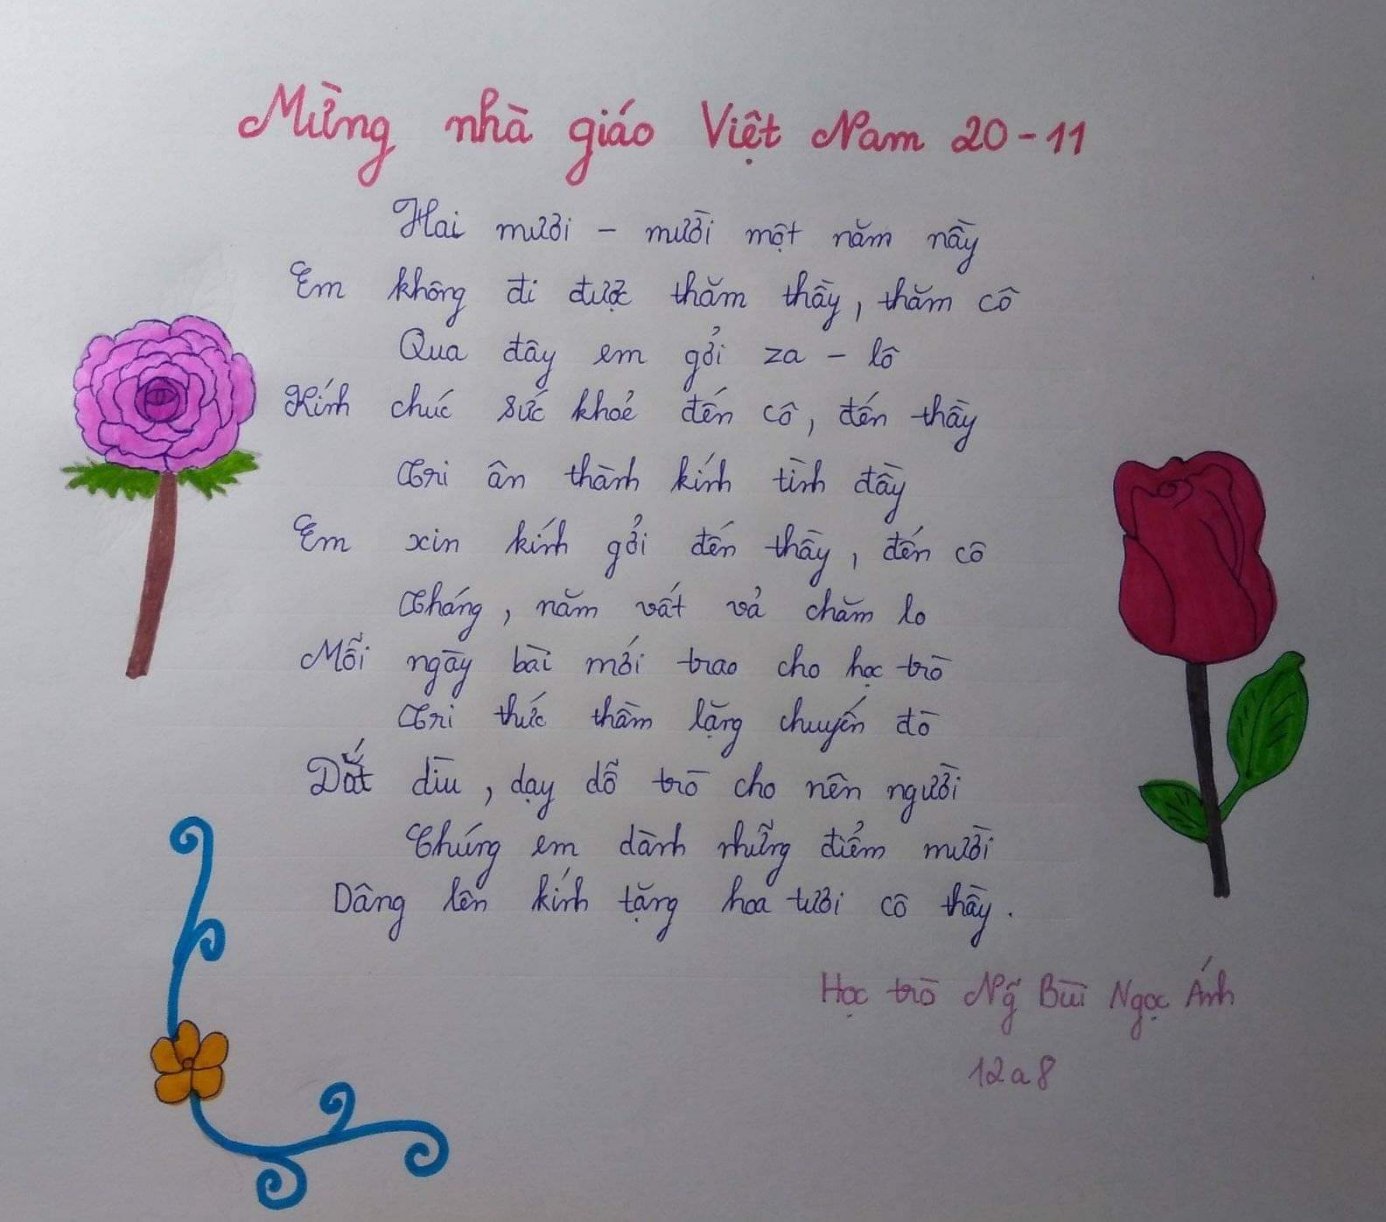 Mừng nhà giáo Việt Nam 20-11
Hai mươi - mười một năm nầy
Em không đi được thăm thầy, thăm cô
Qua đây em gởi za - lô
Kính chúc sức khoẻ đến cô, đến thầy
Tri ân thành kính tình đầy
Em xin kính gởi đến thầy, đến cô
Tháng, năm vất vả chăm lo
Mỗi ngày bài mới trao cho học trò
Tri thức thầm lặng chuyến đò
Dắt dìu, dạy dỗ trò cho nên người
Chúng em dành những điểm mười
Dâng lên kính tặng hoa tươi cô thầy.
Học trò Ng̃ Bùi Ngọc Ánh
12a8